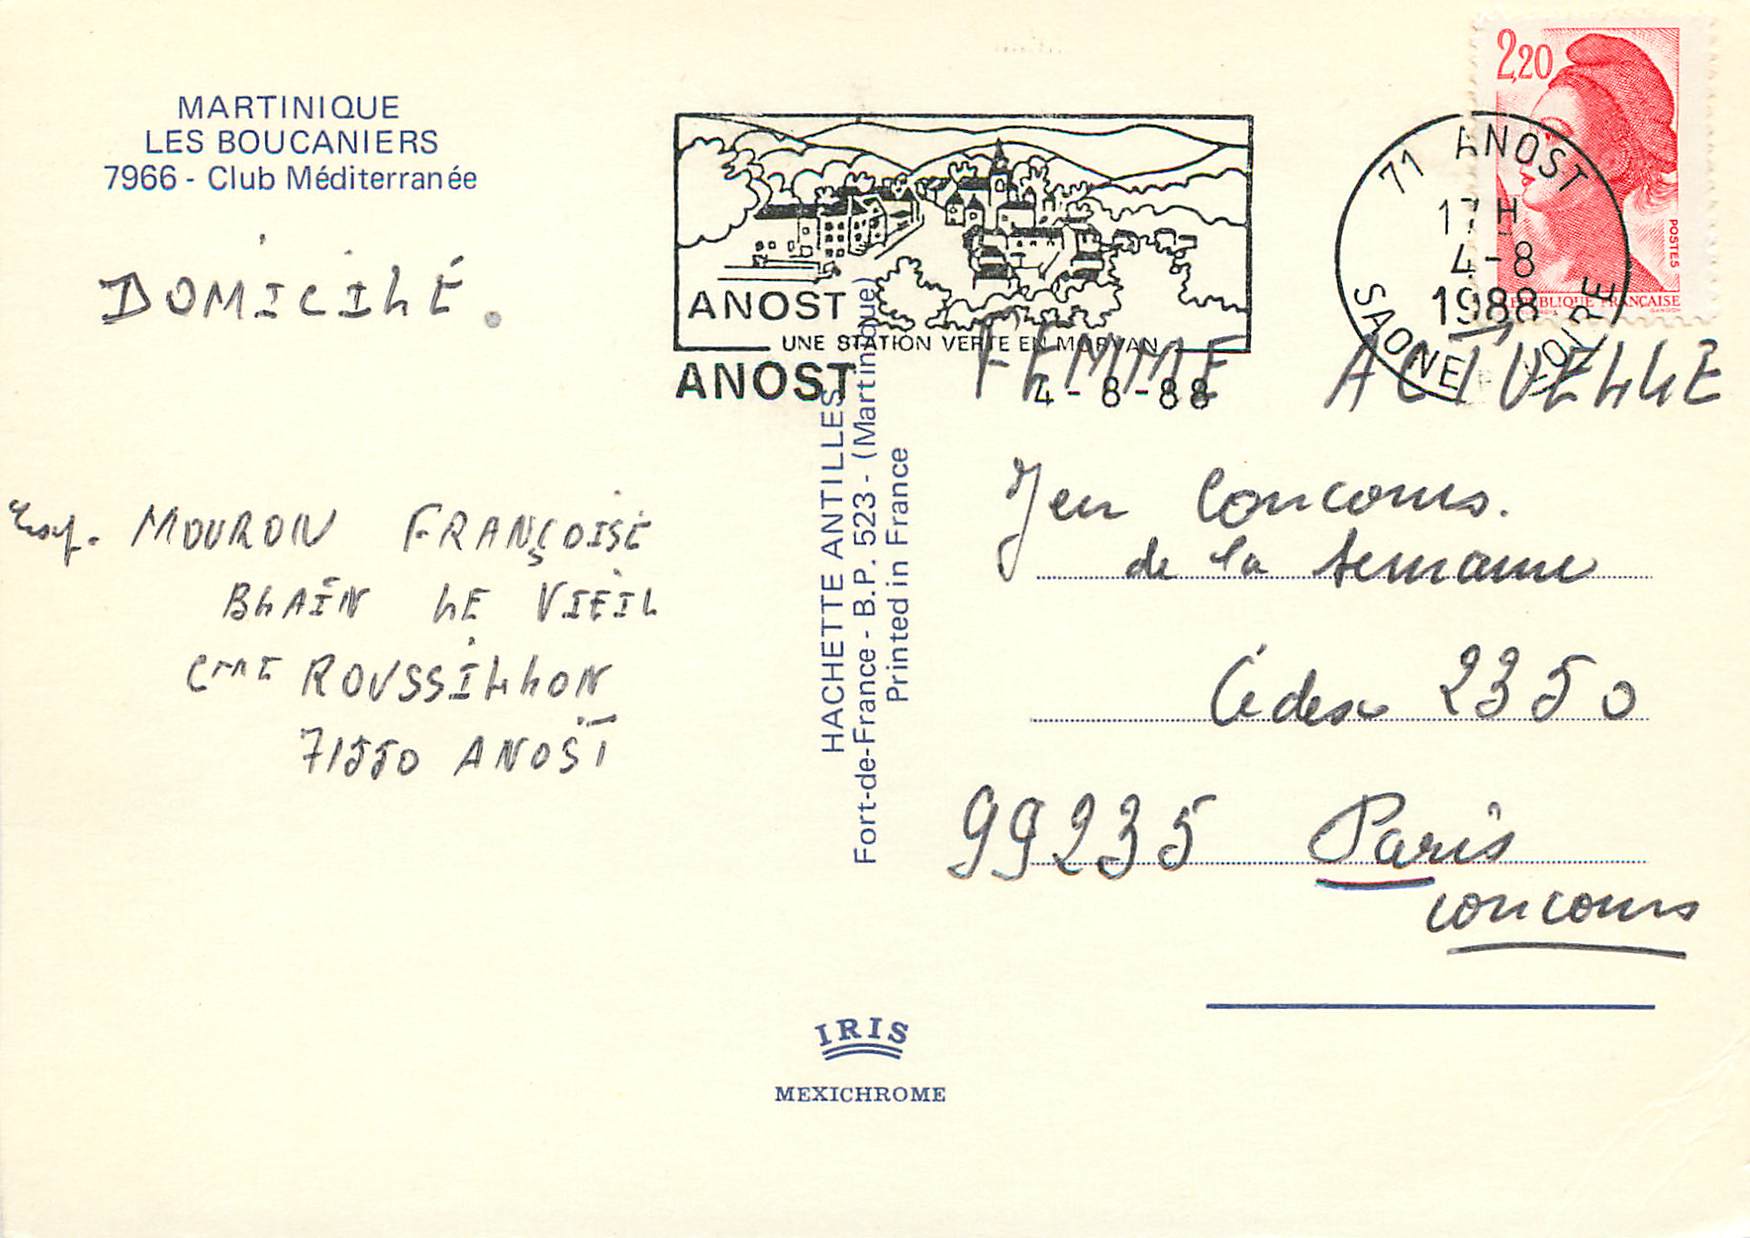 MARTINIQUE
LES BOUCANIERS
7966 - Club Méditerranée
DOMICILE.
Exp. MOURON FRANÇOISE
BLAIN LE VIEIL
Cme ROUSSILLON
71550 ANOST
ANOST
UNE STATION VERTE EN MORVAN
ANOST 4-8-88
2,20
POSTES
REPUBLIQUE FRANÇAISE
71 ANOST
17 H
4-8
1988
SAONE LOIRE
HACHETTE ANTILLES
Fort-de-France - B.P. 523 - (Martinique)
Printed in France
FEMME ACTUELLE
Jeu Concours.
de la semaine
Cedex 2350
99235 Paris
concours
IRIS
MEXICHROME